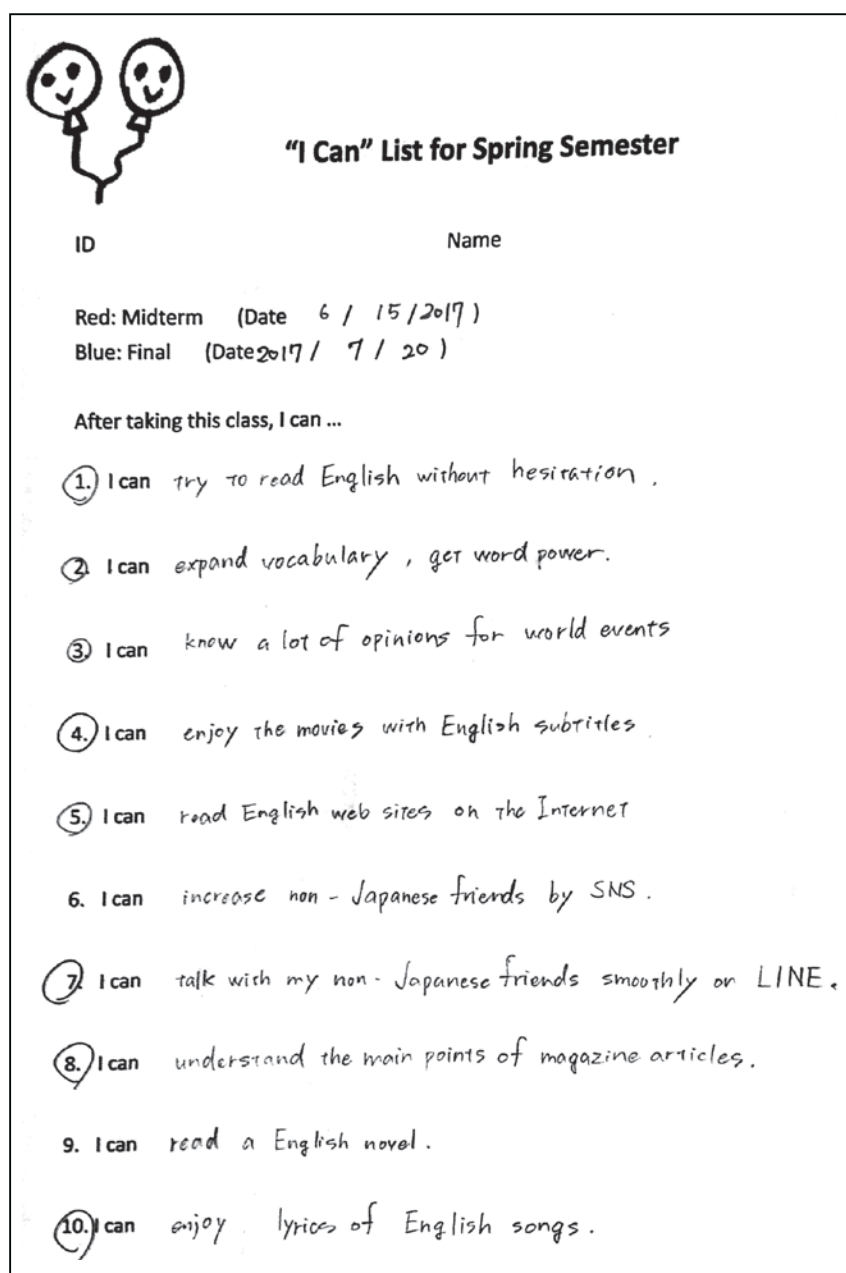 "I Can" List for Spring Semester
ID Name
Red: Midterm (Date 6 / 15/2017)
Blue: Final (Date 2017 / 7 / 20 )
After taking this class, I can ...
1. I can try to read English without hesitation.
2. I can expand vocabulary, get word power.
3. I can know a lot of opinions for world events
4. I can enjoy the movies with English subtitles
5. I can read English web sites on the Internet
6. I can increase non-Japanese friends by SNS.
7. I can talk with my non-Japanese friends smoothly on LINE.
8. I can understand the main points of magazine articles.
9. I can read a English novel.
10. I can enjoy lyrics of English songs.